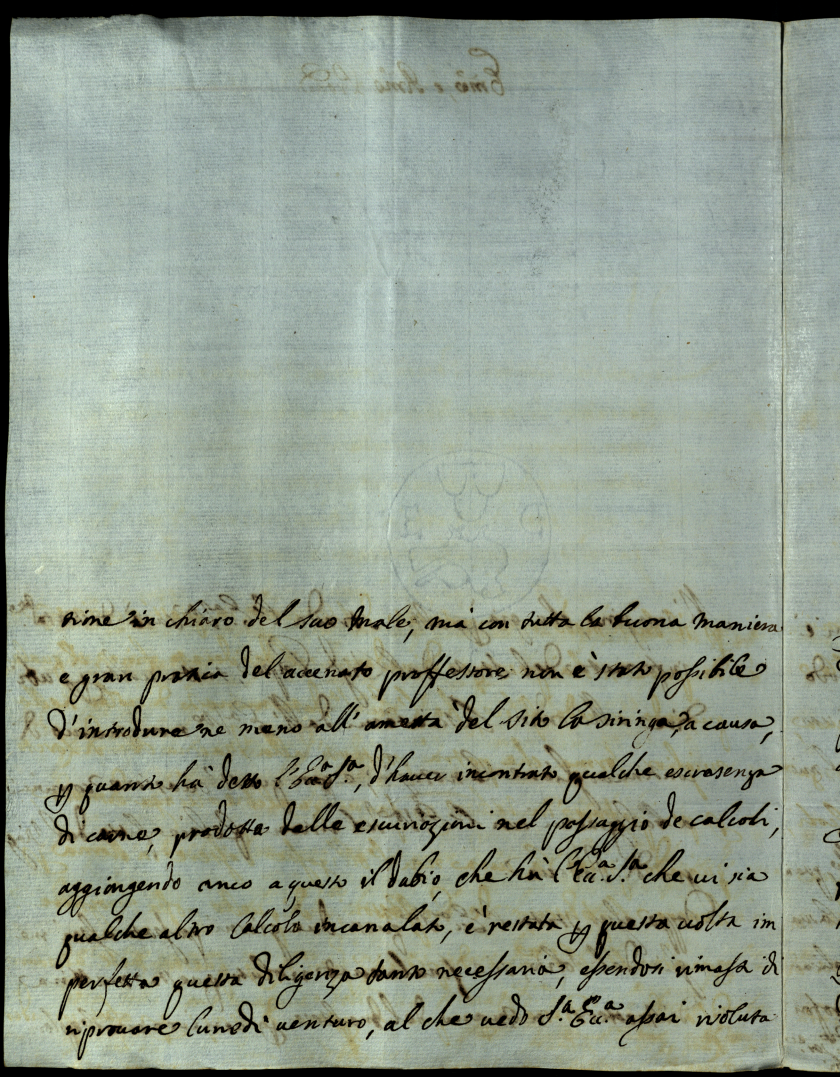 zione in chiaro del suo male, mà con tutta la buona maniera
e gran pratica del accenato proffessore non è stato possibile
d'introdurre ne meno all' ametta del sito la siringa, a causa,
p quanto hà detto l'Ecc.a S.a, d'hauer incontrato qualche escrasenza
di carne, prodotta dalle escuriazioni nel passaggio de calcoli,
aggiongendo anco a questo il dubio, che hà l'Ecc.a S.a che ui sia
qualche altro Calcolo incanalato, è restata p questa uolta im
perfetta questa diligenza tanto necessaria, essendosi rimassa di
riprouare lunedi uenturo, al che uedo S.a Ecc.a assai risoluta